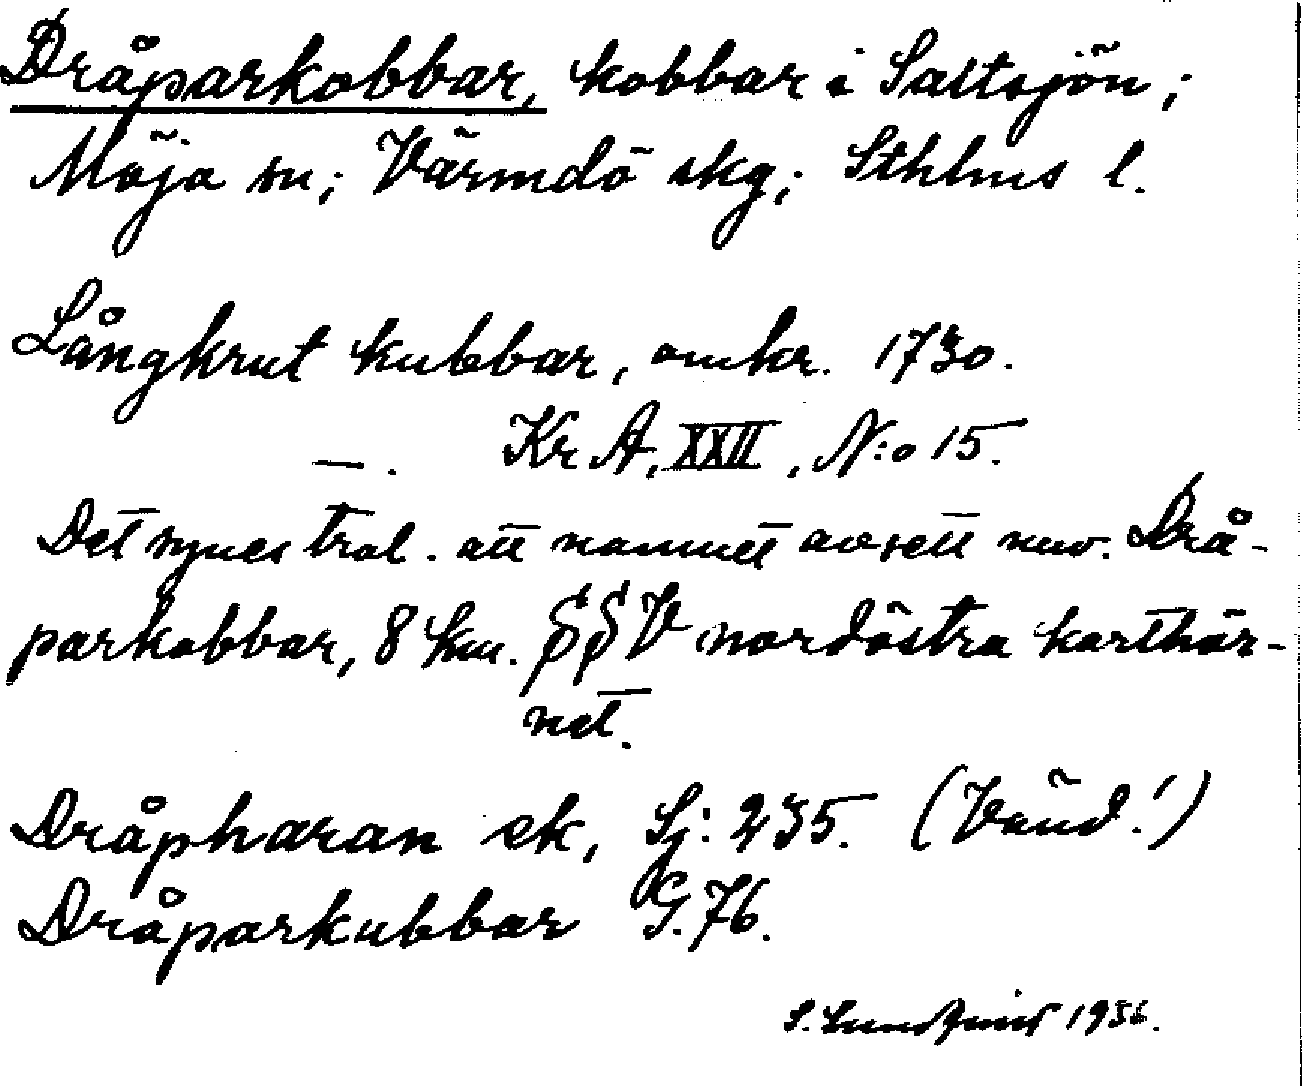 Dråparkobbar, kobbar i Saltsjön;
Möja sn; Värmdö skg; Sthlms l.
Långkrut kubbar, omkr. 1730.
—. Kr A, XXII, N:o 15.
Det synes trol. att namnet avsett nuv. Drå-
parkobbar, 8 km. SSV nordöstra karthör-
net.
Dråpharan sk, Sj: 235. (Vänd!)
Dråparkubbar G. 76.
S. Lundqvist 1936.